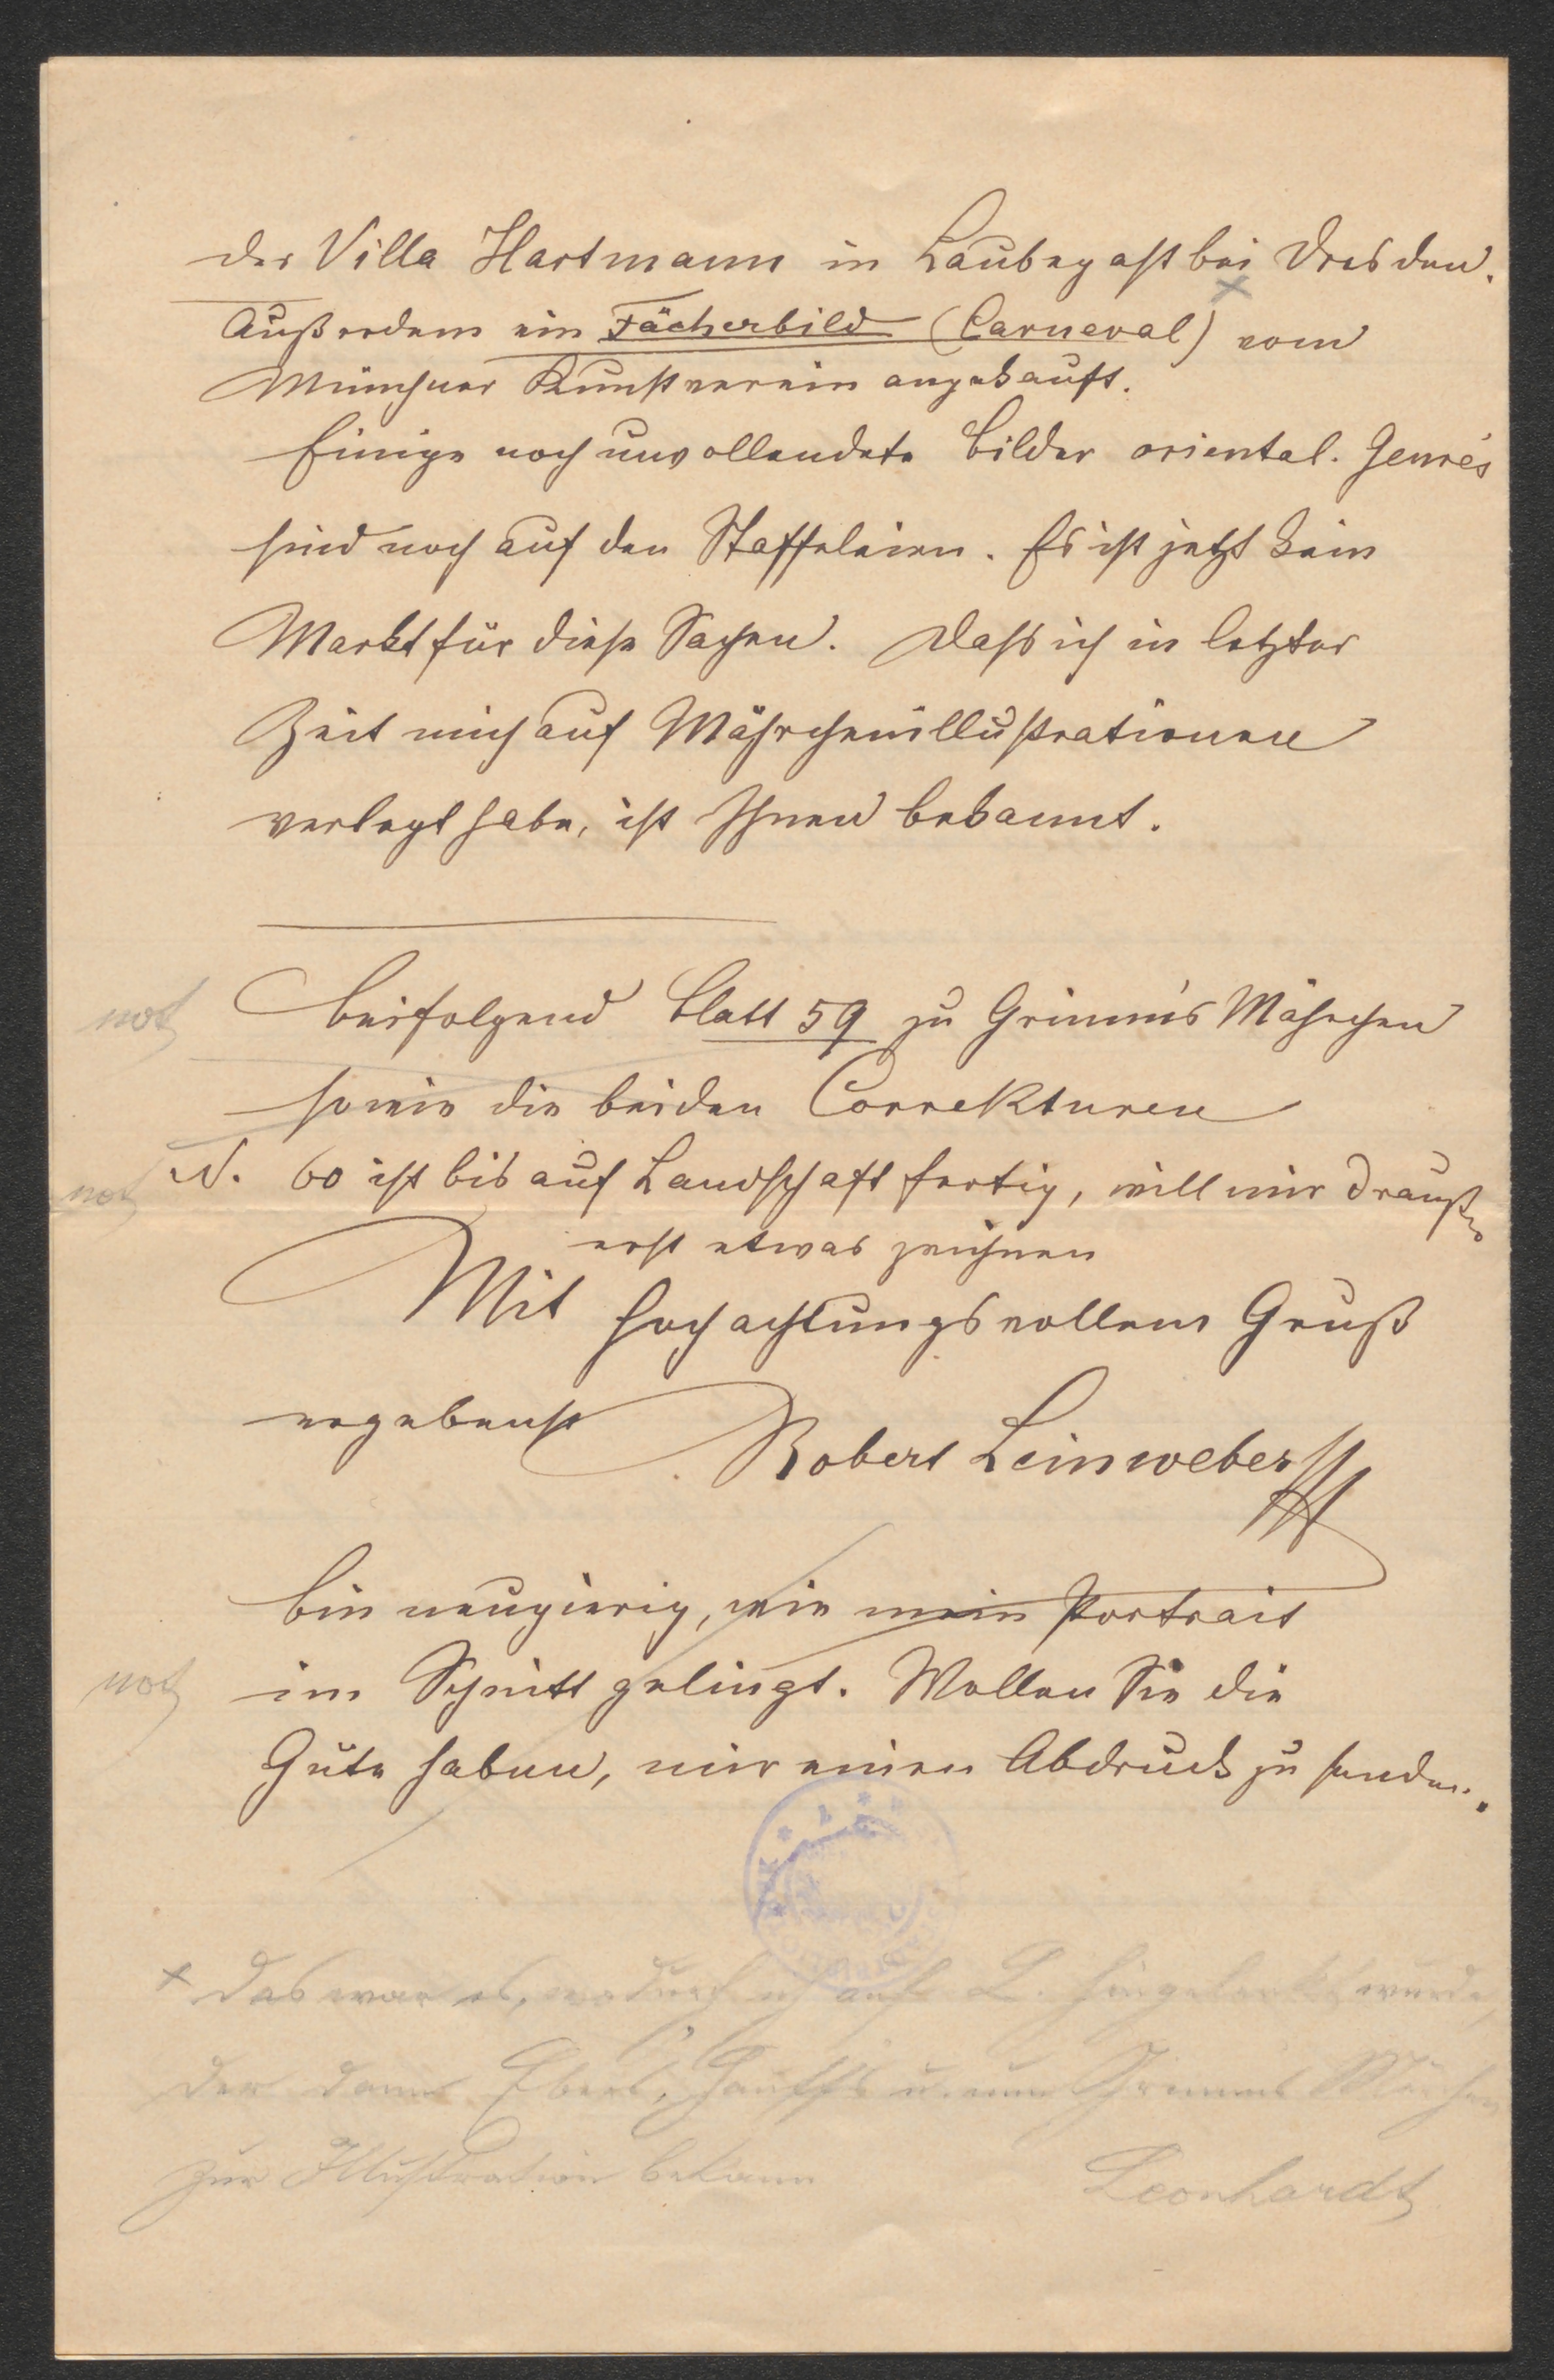 der Villa Hartmann in Laubegast bei Dresden.
×
Außerdem ein Fächerbild (Carneval) vom
Münchner Kunstverein angekauft.
Einige noch unvollendete Bilder oriental. Genrés
sind noch auf den Staffeleien. Es ist jetzt kein
Markt für diese Sachen. Daß ich in letzter
Zeit mich auf Mährchenillustrationen
verlegt habe, ist Ihnen bekannt.
not Beifolgend Blatt 59 zu Grimm's Mährchen
sowie die beiden Correkturen
not N. 60 ist bis auf Landschaft fertig, will mir draußen
erst etwas zeichnen
Mit hochachtungsvollem Gruß
ergebenst Robert Leinweber
Bin neugierig, wie mein Portrait
not im Schnitt gelingt. Wollen Sie die
Güte haben, mir einen Abdruck zu senden.
× Das war es, wodurch ich auf L. hingelenkt wurde,
der dann Ebers, Hauffs u. nun Grimms Märchen
zur Illustration bekam Leonhardt